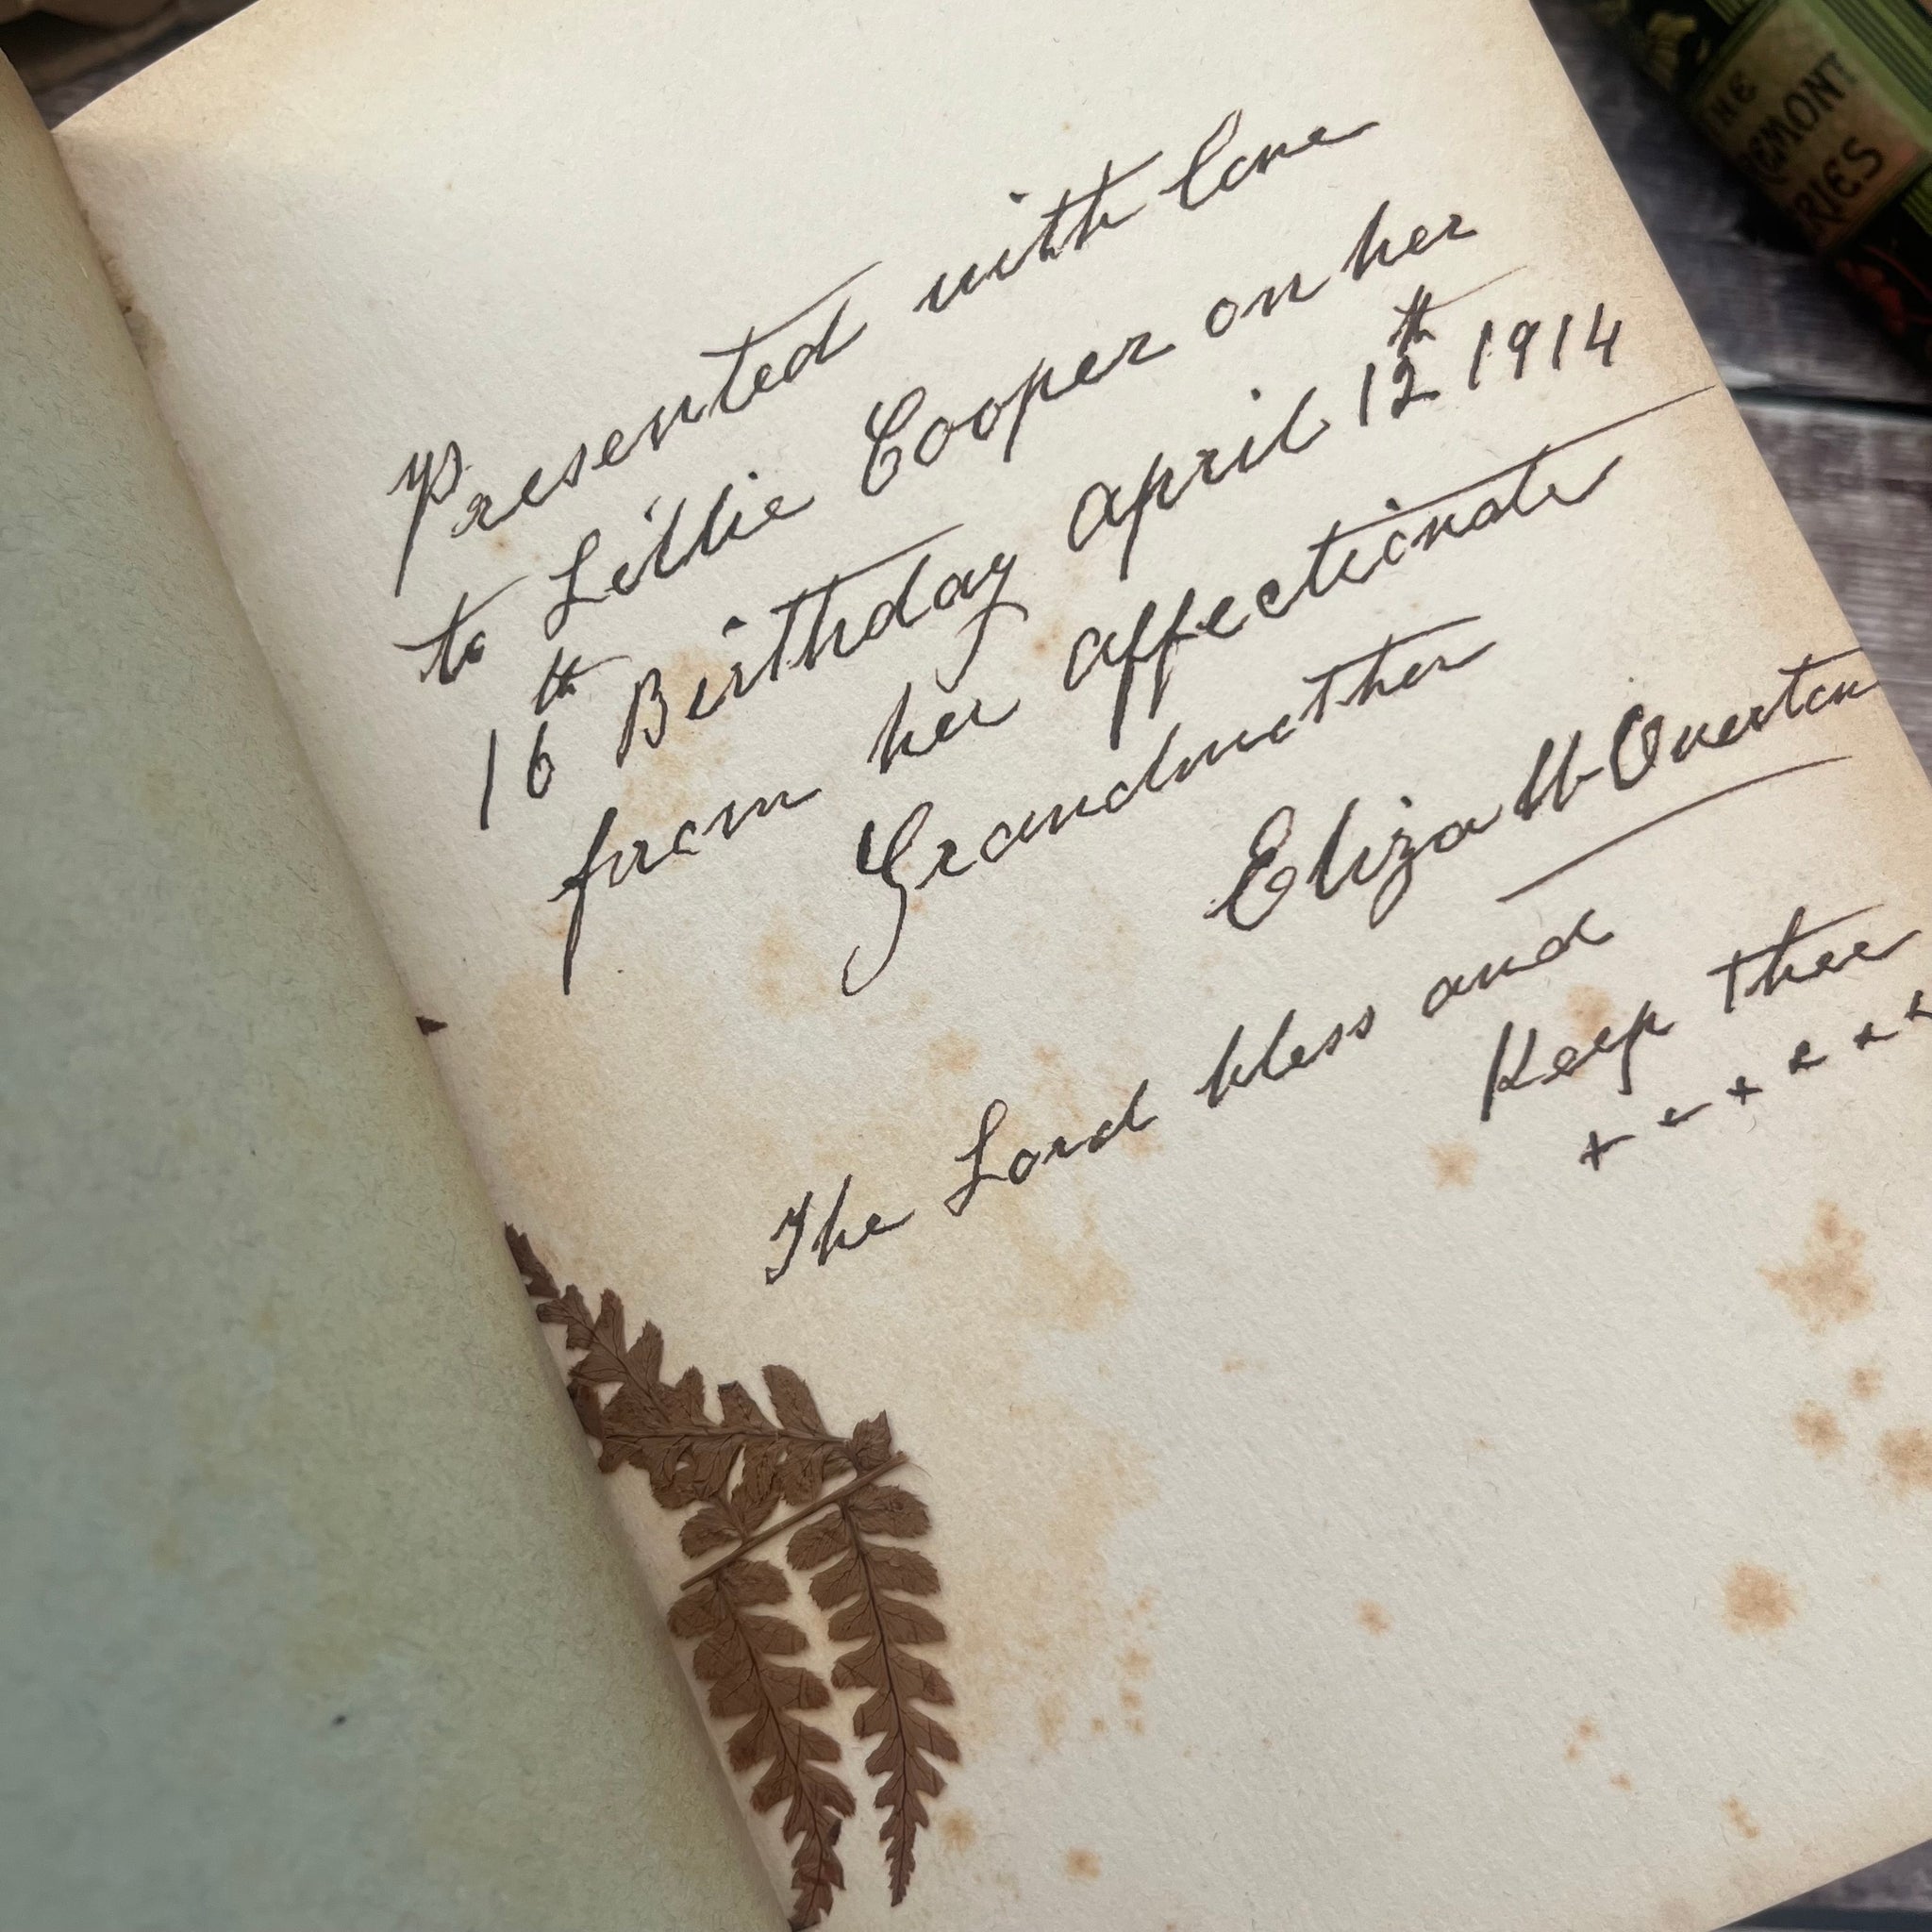 Presented with love
to Lillie Cooper on her
16th Birthday April 12th 1914
from her affectionate
Grandmother
Eliza W Overton
The Lord bless and
Keep thee
THE
EMONT
RIES